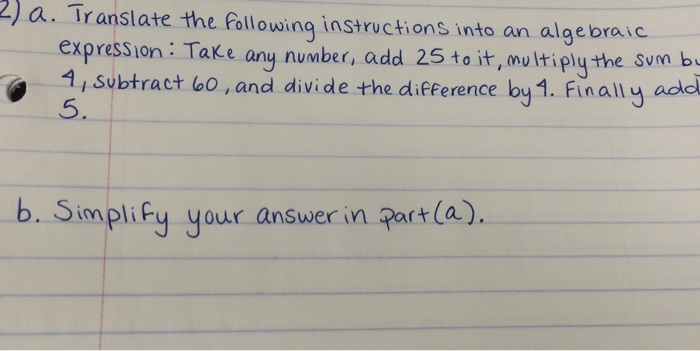 2) a. Translate the following instructions into an algebraic
expression: Take any number, add 25 to it, multiply the sum by
4, subtract 60, and divide the difference by 4. Finally add
5.
b. Simplify your answer in part (a).